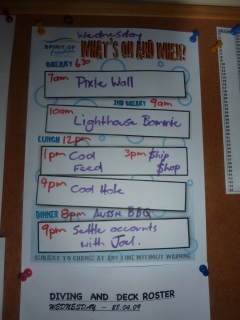 Wednesday
SPIRIT OF Freedom WHAT'S ON AND WHEN!
BREAKY 630
7am Pixie Wall
2ND BREAKY 9am
10am Lighthouse Bommie
LUNCH 12pm
1pm Cod Feed 3pm $hip $hop
9pm Cod Hole
DINNER 8pm AUSSIE BBQ
9pm Settle accounts with Joel.
SUBJECT TO CHANGE AT ANY TIME WITHOUT WARNING
DIVING AND DECK ROSTER
WEDNESDAY - 28.04.09